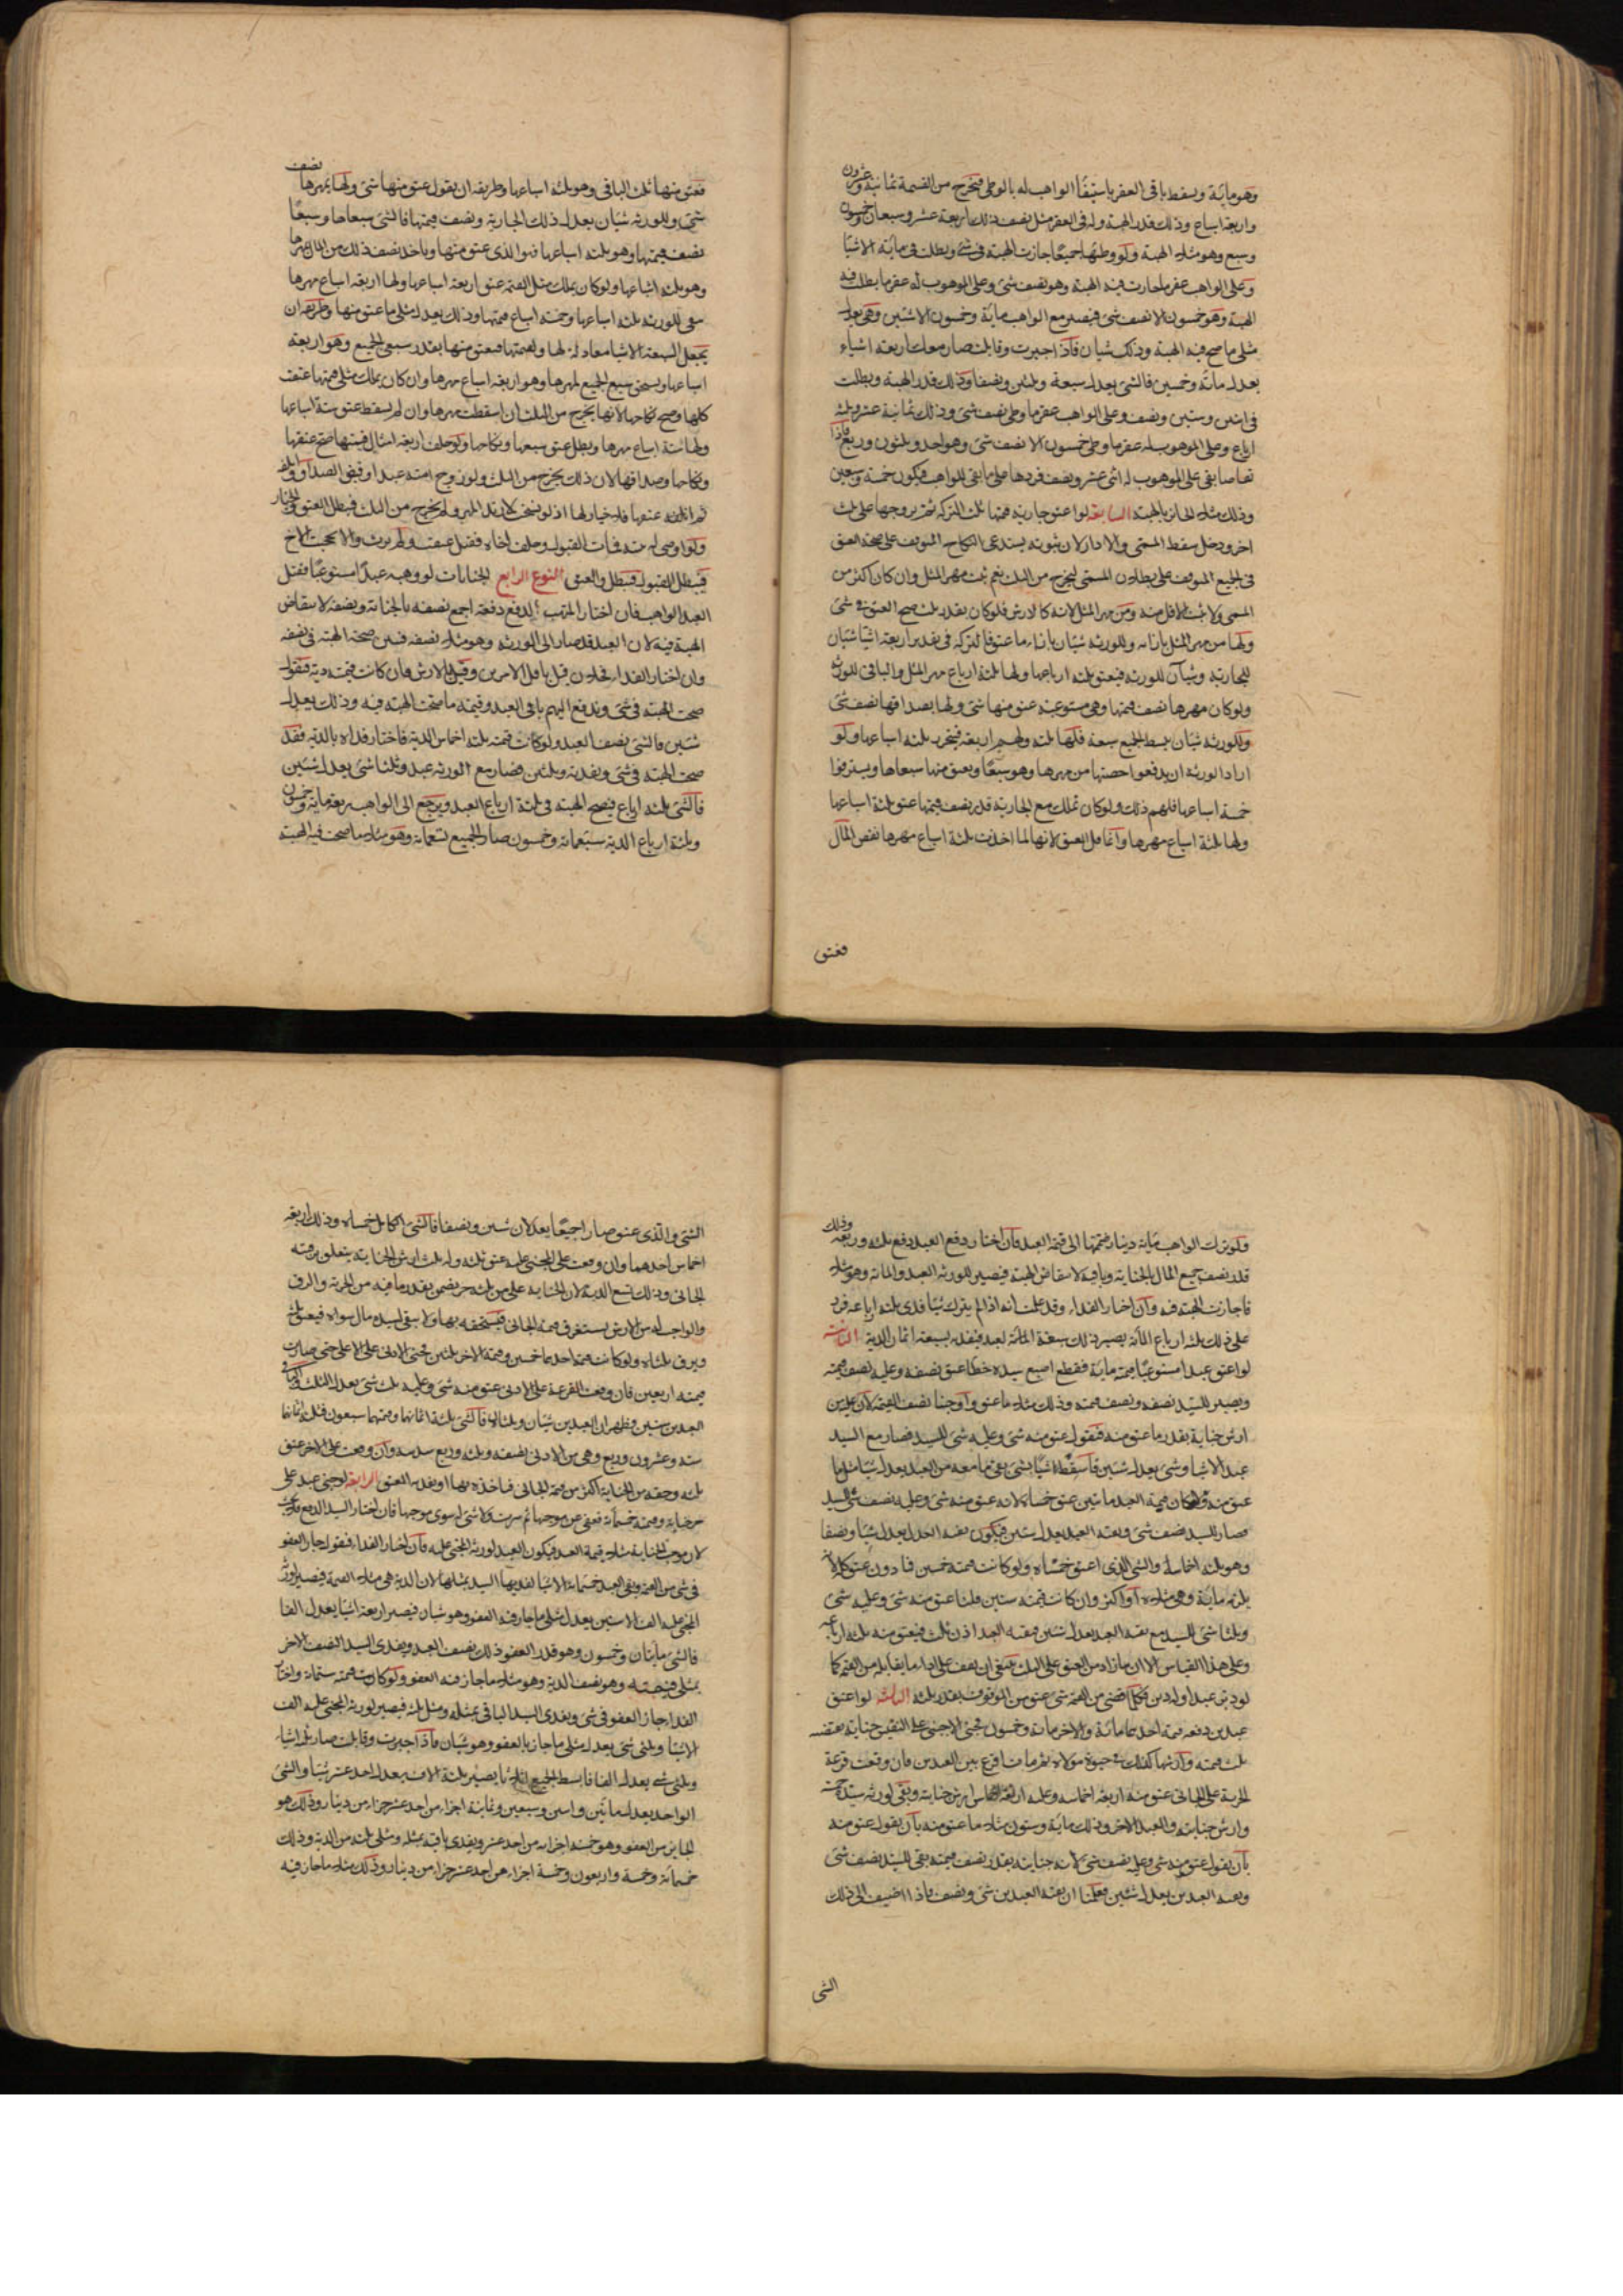 وهو مائة ويسقط باقى العقر باستيفاء الواهب له بالوطى فيخرج من القسمة ثمانية وعشرون
واربعة اسباع وذلك قدر الهبة وله فى العقر مثل نصف ذلك اربعة عشر وسبعان
وسبع وهو مثلا الهبة ولو وطئها جميعا جازت الهبة فى شئ وبطلت فى مائة الا شيئا
وعلى الواهب عقر ما جازت فيه الهبة وهو نصف شئ وعلى الموهوب له عقر ما بطلت فيه
الهبة وهو خمسون الا نصف شئ فيصير مع الواهب مائة وخمسون الا شيئين وهى يعدل
مثلى ما صح فيه الهبة وذلك شيان فاذا اجبرت وقابلت صار معك اربعة اشياء
يعدل مائة وخمسين فالشئ يعدل سبعة وثلثين ونصفا وذلك قدر الهبة وبطلت
فى اثنين وستين ونصف وعلى الواهب عقر ما وطى نصف شئ وذلك ثمانية عشر وثلثة
ارباع وعلى الموهوب له عقر ما وطى خمسون الا نصف شئ وهو احد وثلثون وربع فاذا
تقاصا بقى على الموهوب له اثنى عشر ونصف فردها على ما بقى للواهب فيكون خمسة وسبعين
وذلك مثلا الجائز بالهبة السابعة لو اعتق جارية قيمتها ثلث التركة ثم تزوجها على ثلث
اخر ودخل سقط المسمى والا دار لان ثبوته يستدعى النكاح المتوقف على صحة العتق
فى الجميع المتوقف على بطلان المسمى ليخرج من الثلث نعم ثبت مهر المثل وان كان اكثر من
المسمى ولا يثبت الاقل منه ومن مهر المثل لانه كالارش فلو كان بقدر ثلث صح العتق فى شئ
ولها من مهر المثل بازائه وللورثة شيئان بازاء ما عتق فالتركة فى تقدير اربعة اشيا شيئان
للجارية وشيآن للورثة فيعتق ثلثة ارباعها ولها ثلثة ارباع مهر المثل والباقى للورثة
ولو كان مهرها نصف قيمتها وهى مستوعبة عتق منها شئ ولها بصداقها نصف شئ
وللورثة شيئان يبسط الجميع سبعة فلها ثلثة ولهم اربعة فيتحرر ثلثة اسباعها ولو
اراد الورثة ان يدفعوا حصتها من مهرها وهو سبعا ويعتق منها سبعاها ويسترقوا
خمسة اسباعها فلهم ذلك ولو كان تملك مع الجارية قدر نصف قيمتها عتق ثلثة اسباعها
ولها ثلثة اسباع مهرها وانما قل العتق لانها لما اخذت ثلثة اسباع مهرها نقص المال
فعتق
فعتق منها ثلث الباقى وهو ثلثة اسباعها وطريقه ان يقول عتق منها شئ ولها بمهرها نصف
شئ وللورثة شيئان يعدل ذلك الجارية ونصف قيمتها فالشئ سبعاها وسبعا
نصف قيمتها وهو ثلثة اسباعها فهو الذى عتق منها وياخذ نصف ذلك من المال بمهرها
وهو ثلثة اسباعها ولو كان يملك مثل القيمة عتق اربعة اسباعها ولها اربعة اسباع مهرها
بقى للورثة ثلثة اسباعها وخمسة اسباع قيمتها وذلك يعدل مثلى ما عتق منها وطريقه ان
يجعل السبعة الاشيا معادلة لها ولقيمتها فيعتق منها بقدر سبعى الجميع وهو اربعة
اسباعها ويستحق سبع الجميع لمهرها وهو اربعة اسباع مهرها وان كان يملك مثلى قيمتها عتقت
كلها وصح نكاحها لانها يخرج من الثلث ان اسقطت مهرها وان لم يسقط عتق ستة اسباعها
ولها ستة اسباع مهرها وبطل عتق سبعها ونكاحها ولو خلف اربعة امثال قيمتها صح عتقها
ونكاحها وصداقها لان ذلك يخرج من الثلث ولو زوج امته عبدا وقبض الصداق واتلفه
ثم اعتقها فلا خيار لها اذ لو فسخت لارتد المهر ولم يخرج من الثلث فبطل العتق والخيار
ولو اوصى له فمات القبول وخلف اخاه فقبل عتقت ولم يرث والا لحجب الاخ
فيبطل القبول فيبطل والعتق النوع الرابع الجنايات لو وهبه عبدا مستوعبا فقتل
العبد الواهب فان اختار المتهب الدفع دفعه اجمع نصفه بالجناية ونصفه لانتقاض
الهبة فيه لان العبد قد صار الى الورثة وهو مثلا نصفه فتبين صحة الهبة فى نصفه
وان اختار الفداء فداه بن قبل باقل الامرين وقيل الارش فان كانت قيمته دية فنقول
صحت الهبة فى شئ وتدفع اليهم باقى العبد وقيمة ما صحت الهبة فيه وذلك يعدل
شيئين فالشئ نصف العبد ولو كانت قيمته ثلثة اخماس الدية فاختار فداه بالدية فقد
صحت الهبة فى شئ ويفديه وثلثين فصار مع الورثة عبد وثلثا شئ يعدل شيئين
فالشئ ثلثة ارباع فيصح الهبة فى ثلثة ارباع العبد ويرجع الى الواهب ربعه مائة وخمسون
وثلثة ارباع الدية سبعمائة وخمسون صار الجميع تسعمائة وهو مثلا ما صحت فيه الهبة
ولو ترك الواهب مائة دينار ضممتها الى قيمة العبد فان اختار دفع العبد دفع ثلثه وربعه وذلك
قدر نصف جميع المال بالجناية وباقيه لانتقاض الهبة فيصير للورثة العبد والمائة وهو مثلا
ما جازت الهبة فيه وان اختار الفداء وقد علمت انه اذا لم يترك شيئا فدى ثلثة ارباعه فزد
على ذلك ثلثة ارباع المائة يصير ذلك سبعة اثمان العبد فيفديه بسبعة اثمان الدية الثانية
لو اعتق عبدا مستوعبا قيمته مائة فقطع اصبع سيده خطأ عتق نصفه وعليه نصف قيمته
ويصير للسيد نصفه ونصف قيمته وذلك مثلا ما عتق واوجبنا نصف القيمة لان عليه من
ارش جناية بقدر ما عتق منه فنقول عتق منه شئ وعليه شئ للسيد فصار مع السيد
عبد الا شيئا وشئ يعدل شيئين فاسقط شيئا بشئ بقى ما معه من العبد يعدل شيئا مثل ما
عتق منه ولو كان قيمة العبد مائتين عتق خمساه لانه عتق منه شئ وعليه نصف شئ للسيد
فصار للسيد نصف شئ وبقية العبد يعدل شيئين فيكون بقية العبد يعدل شيئا ونصفا
وهو ثلثة اخماسه والشئ الذى اعتق خمساه ولو كانت قيمته خمسين فما دون عتق كله لانه
يلزمه مائة وهى مثلاه او اكثر وان كانت قيمته ستين قلنا عتق منه شئ وعليه شئ
وثلثا شئ للسيد مع بقية العبد يعدل شيئين فبقية العبد اذن ثلث فيعتق منه ثلثة ارباعه
وعلى هذا القياس الا ان ما زاد من العتق على الثلث ينبغى ان يقف على اداء ما يقابله من القيمة كما
لو دبر عبدا وله دين فكلما اقتضى من القيمة شئ عتق من الموقوف بقدر ثلثه الثالثة لو اعتق
عبدين دفعة قيمة احدهما مائة والاخر مائة وخمسون فجنى الاجنى على النفيس جناية نقصته
ثلث قيمته وارشها كذلك فى حيوة مولاه ثم مات اقرع بين العبدين فان وقعت قرعة
الحرية على الجانى عتق منه اربعة اخماسه وعليه اربعة اخماس ارش جنايته وبقى لورثة سيده خمسه
وارش جنايته والعبد الاخر وذلك مائة وستون مثلا ما عتق منه بان يقول عتق منه
بان يقول عتق منه شئ وعليه نصف شئ لانه جنايته بقدر نصف قيمته بقى للسيد نصف شئ
وبقية العبدين يعدل شيئين فعلمنا ان بقية العبدين شئ ونصف فاذا اضيف الى ذلك
الشئ
الشئ والذى عتق صارا جميعا يعدلان شيئين ونصفا فالشئ الكامل خمساه وذلك اربعة
اخماس احدهما وان وقعت على المجنى عليه عتق ثلثه وله ثلث ارش الجناية يتعلق برقبة
الجانى وذلك تسع الدية لان الجناية على من ثلثه حر يضمن بقدر ما فيه من الحرية والرق
والواجب له من الارش يستغرق قيمة الجانى فيستحقه بها ولا يبقى لسيده مال سواه فيعتق ثلثه
ويرق ثلثاه ولو كانت قيمة احدهما خمسين وقيمة الاخر ثلثين فجنى الادنى على الاعلى حتى صارت
قيمته اربعين فان وقعت القرعة على الادنى عتق منه شئ وعليه ثلث شئ يعدل الثلث
العبدين ستين فظهر ان العبدين شيئان وثلثان فالشئ ثلثة اثمانها وقيمتهما سبعون فثلثة اثمانها
ستة وعشرون وربع وهى من الادنى نصفه وثلثه وربع سدسه وان وقعت على الاخر عتق
ثلثه وحقه من الجناية اكثر من قيمة الجانى فياخذه بها او يفديه المعتق الرابعة لو جنى عبد على
حر جناية وقيمته خمسمائة فعفى عن موجبها ثم سرت ولا شئ له سوى موجبها فان اختار السيد الدفع
لان موجب الجناية مثلا قيمة العبد فيكون العبد لورثة المجنى عليه فان اختار الفداء فنقول جاز العفو
فى شئ من القيمة وبقى العبد خمسمائة الا شيئا يفديها السيد بمثلها لان الدية هى مثلا القيمة فيصير لورثة
المجنى عليه الف الا شيئين يعدل مثلى ما جاز فيه العفو وهو شيئان فيصير اربعة اشيا يعدل الفا
فالشئ مائتان وخمسون وهو قدر العفو وذلك نصف العبد ويفدى السيد النصف الاخر
بمثلى قيمته وهو نصف الدية وهو مثلا ما جاز فيه العفو ولو كانت قيمته ستمائة واختار
الفداء جاز العفو فى شئ ويفدى السيد الباقى بمثله ومثل ثلثيه فيصير لورثة المجنى عليه الف
الا شيئا وثلثى شئ يعدل مثلى ما جاز بالعفو وهو شيئان فاذا اجبرت وقابلت صار ثلثة اشياء
وثلثى شئ يعدل الفا فابسط الجميع اثلاثا يصير ثلثة الاف يعدل احد عشر شيئا والشئ
الواحد يعدل مائتين واثنين وسبعين وثمانية اجزاء من احد عشر جزءا من دينار وذلك هو
الجايز من العفو وهو خمسة اجزاء من احد عشر ويفدى باقيه بمثله ومثلى ثلثه من الدية وذلك
خمسمائة وخمسة واربعون وخمسة اجزاء من احد عشر جزءا من دينار وذلك مثلا ما جاز فيه